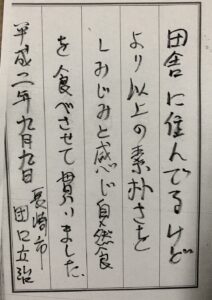 田舎に住んでるけど
より以上の素朴さを
しみじみと感じ自然食
を食べさせて貰いました、
平成二年九月九日 長崎市
田口立治